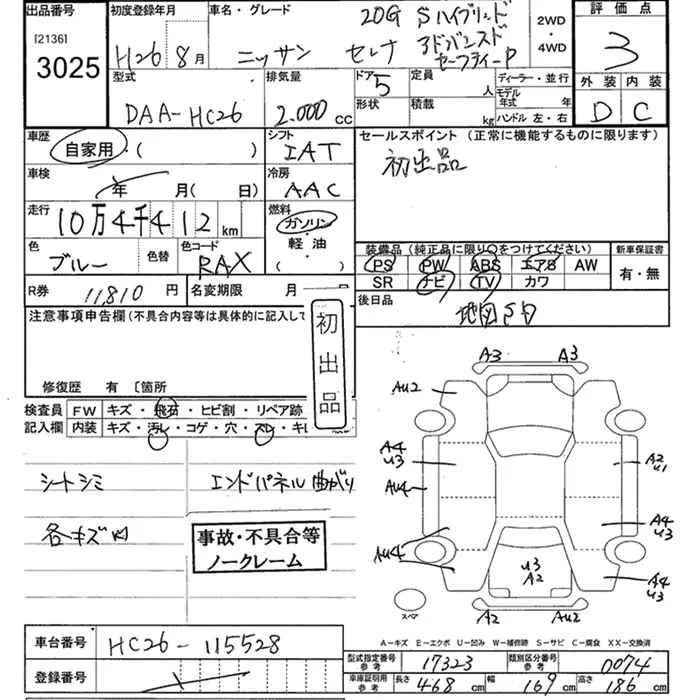 出品番号
[2136]
3025
初度登録年月
H26 8月
車名・グレード
ニッサン セレナ
20G Sハイブリッド
アドバンスド
セーフティーP
2WD
・
4WD
評価点
3
外装 内装
D C
型式
DAA-HC26
排気量
2.000cc
ドア 5
形状
定員 人
積載 kg
ディーラー・並行
モデル
年式 年
ハンドル 左・右
車歴
自家用・( )
シフト
IAT
セールスポイント (正常に機能するものに限ります)
初出品
車検
年 月(日)
冷房
AAC
走行
10万4千412km
燃料
ガソリン
・
軽・油
( )
色
ブルー
色替
色コード
RAX
装備品(純正品に限り○をつけてください)
PS PW ABS エアB AW
SR ナビ TV カワ
新車保証書
有・無
R券 11,810円
名変期限 月
後日品
地図SD
注意事項申告欄(不具合内容等は具体的に記入して
初出品
修復歴 有 〔箇所
検査員
記入欄
FW キズ・飛石・ヒビ割・リペア跡
内装 キズ・汚レ・コゲ・穴・スレ・キレ
シートシミ
エンドパネル曲がり
各キズ凹
事故・不具合等
ノークレーム
A3 A3
AU2
A4
U3
A2
U1
AU4
A4
U3
AU4
U3
A2
A4
U3
スペア
A2 AU2
A-キズ E-エクボ U-凹み W-補修跡 S-サビ C-腐食 XX-交換済
車台番号
HC26-115528
登録番号
型式指定番号
参考
17323
類別区分番号
参考
0074
車庫証明用
参考
長さ 468cm
幅 169cm
高さ 186cm